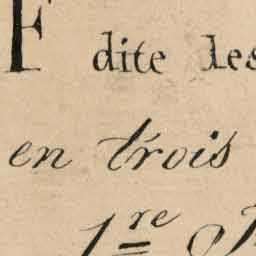 F dite les
en trois
1re P